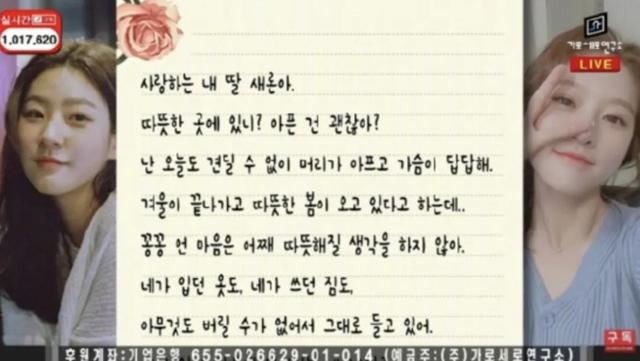 실시간
1,017,620
가로세로연구소
LIVE
사랑하는 내 딸 새론아.
따뜻한 곳에 있니? 아픈 건 괜찮아?
난 오늘도 견딜 수 없이 머리가 아프고 가슴이 답답해.
겨울이 끝나가고 따뜻한 봄이 오고 있다고 하는데..
꽁꽁 언 마음은 어째 따뜻해질 생각을 하지 않아.
네가 입던 옷도, 네가 쓰던 짐도,
아무것도 버릴 수가 없어서 그대로 들고 있어.
구독
후원계좌:기업은행 655-026629-01-014 (예금주:(주)가로세로연구소)